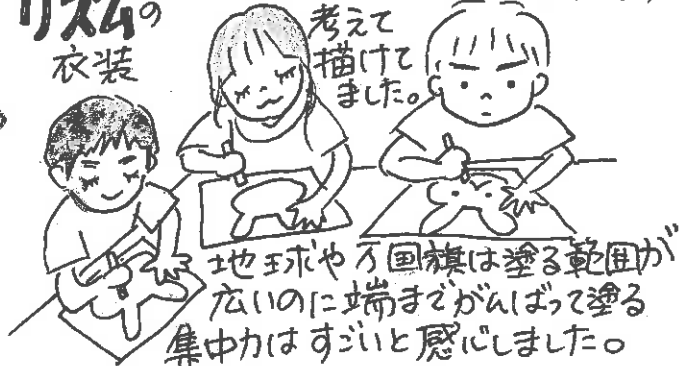 リズムの
衣装
考えて
描けて
ました。
地球や万国旗は塗る範囲が
広いのに端までがんばって塗る
集中力はすごいと感心しました。